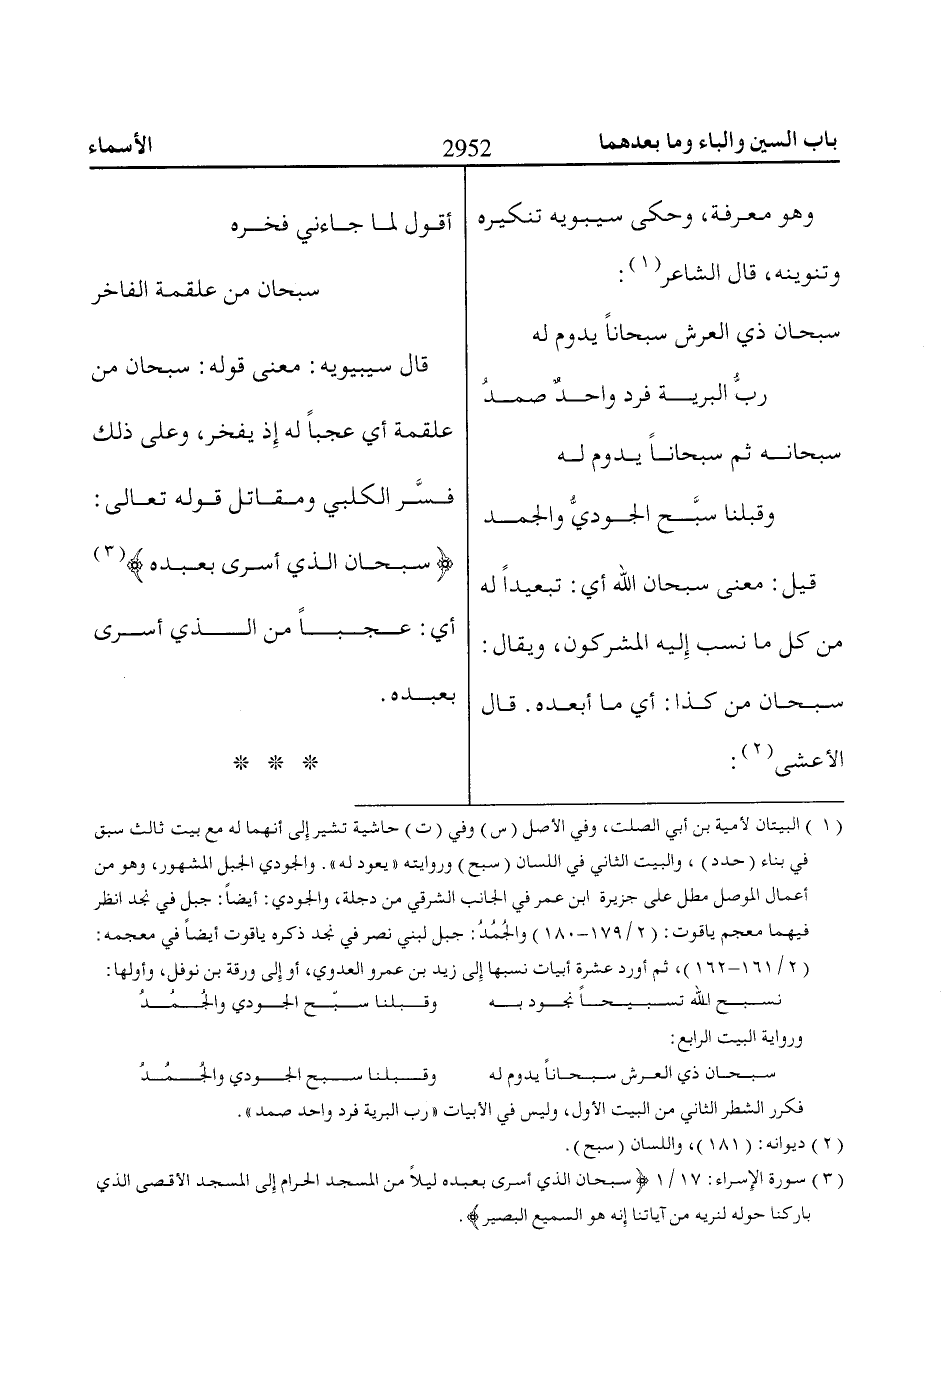 باب السين والباء وما بعدهما
2952
الأسماء
وهو معرفة، وحكى سيبويه تنكيره
وتنوينه، قال الشاعر(١):
سبحان ذي العرش سبحاناً يدوم له
ربُّ البريـــة فرد واحـدٌ صمـــدُ
سبحانـــه ثم سبحانـــاً يـدوم لــه
وقبلنا سبَّـــح الجـــوديُّ والجمـــد
قيل: معنى سبحان الله أي: تبعيداً له
من كل ما نسب إليه المشركون، ويقال:
سبـحـان من كـذا: أي مـا أبعـده. قـال
الأعشى(٢):
أقـول لمـا جـاءني فخـــره
سبحان من علقمة الفاخر
قال سيبيويه: معنى قوله: سبحان من
علقمة أي عجباً له إذ يفخر، وعلى ذلك
فـسَّـر الكلبي ومـقـاتل قـوله تعـالى:
﴿ سبـحـان الـذي أسـرى بعـبـده ﴾(٣)
أي: عـجـبـــاً من الـــذي أسـرى
بعبـده.
* * *
( ١ ) البيتان لأمية بن أبي الصلت، وفي الأصل ( س ) وفي ( ت ) حاشية تشير إلى أنهما له مع بيت ثالث سبق
في بناء ( حدد ) ، والبيت الثاني في اللسان ( سبح ) وروايته « يعود له ». والجودي الجبل المشهور، وهو من
أعمال الموصل مطل على جزيرة ابن عمر في الجانب الشرقي من دجلة، والجودي: أيضاً: جبل في نجد انظر
فيهما معجم ياقوت: ( ٢/ ١٧٩-١٨٠ ) والجُمُدُ: جبل لبني نصر في نجد ذكره ياقوت أيضاً في معجمه:
( ٢/ ١٦١-١٦٢ )، ثم أورد عشرة أبيات نسبها إلى زيد بن عمرو العدوي، أو إلى ورقة بن نوفل، وأولها:
نسـبـح الله تسـبـيـحـاً نجـود بـــه وقـبلنـا سـبّـح الجـودي والجُـمُـــدُ
ورواية البيت الرابع:
سبـحـان ذي العـرش سبـحـاناً يدوم له وقـبلنـا سـبـح الجـودي والجُـمُـــدُ
فكرر الشطر الثاني من البيت الأول، وليس في الأبيات « رب البرية فرد واحد صمد ».
( ٢ ) ديوانه: ( ١٨١ )، واللسان ( سبح ).
( ٣ ) سورة الإسراء: ١٧/ ١ ﴿ سبحان الذي أسرى بعبده ليلاً من المسجد الحرام إلى المسجد الأقصى الذي
باركنا حوله لنريه من آياتنا إنه هو السميع البصير ﴾.